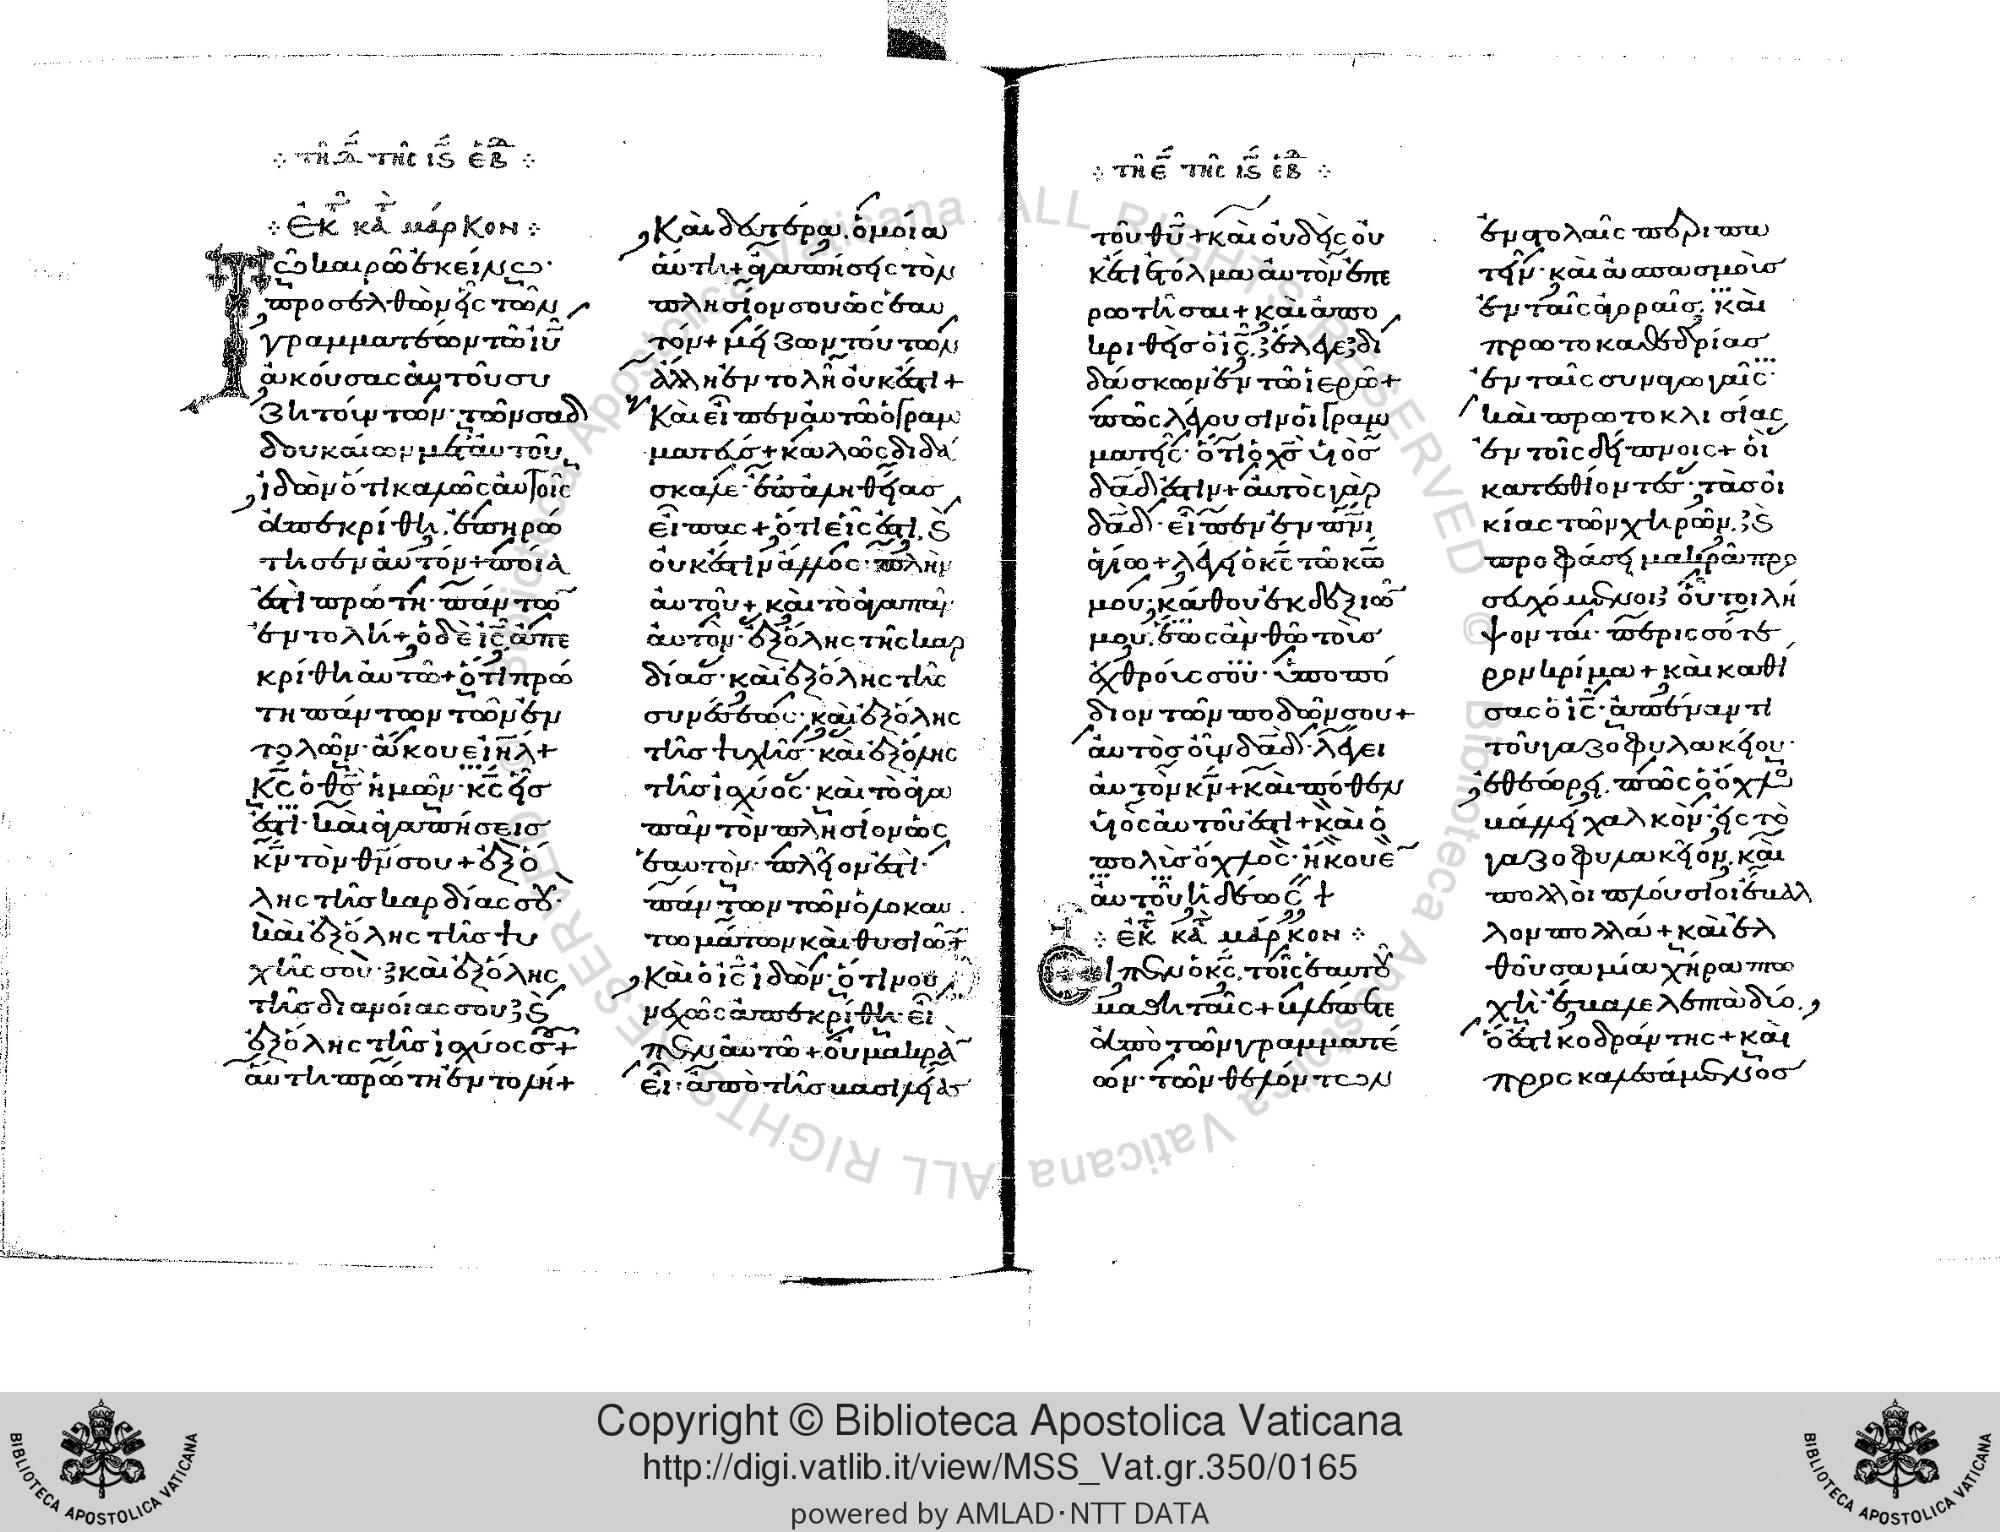 ⁘ τῆ Δ̅ τῆς ιϛ̅ ἑβ ⁘
⁘ ἐκ τ κατ μάρκον ⁘
Τῶ καιρῶ ἐκείνω·
προσελθὼν εἷς τῶν
γραμματέων τῶ ιῦ
ἀκούσας αὐτοῦ συ
ζητούντων· τῶν σαδ
δουκαίων μετ αὐτοῦ,
ἰδὼν ὅτι καλῶς αὐτοῖς
ἀπεκρίθη, ἐπηρώ
τησεν αὐτόν + ποία
ἐστὶ πρώτη· πάντων
ἐντολή + ὁ δὲ ις ἀπε
κρίθη αὐτῶ + ὅτι πρώ
τη πάντων τῶν ἐν
τολῶν· ἄκουε ιηλ +
κς ὁ θς ἡμῶν· κς εἷς
ἐστι· καὶ ἀγαπήσεις
κν τὸν θν σου + ἐξ ὅ
λης τῆς καρδίας σου·
καὶ ἐξ ὅλης τῆς ψυ
χῆς σου· καὶ ἐξ ὅλης
τῆς διανοίας σου· καὶ
ἐξ ὅλης τῆς ἰσχύος σου +
αὕτη πρώτη ἐντολή +
Καὶ δευτέρα, ὁμοία
αὐτῆ + ἀγαπήσεις τὸν
πλησίον σου ὡς ἑαυ
τόν + μείζων τούτων
ἄλλη ἐντολὴ οὐκ ἔστι +
Καὶ εἶπεν αὐτῶ ὁ γραμ
ματεύς + καλῶς διδά
σκαλε· ἐπ ἀληθείας
εἶπας + ὅτι εἷς ἐστι, καὶ
οὐκ ἔστιν ἄλλος· πλὴν
αὐτοῦ + καὶ τὸ ἀγαπᾶν
αὐτὸν· ἐξ ὅλης τῆς καρ
δίας· καὶ ἐξ ὅλης τῆς
συνέσεως· καὶ ἐξ ὅλης
τῆς ψυχῆς· καὶ ἐξ ὅλης
τῆς ἰσχύος· καὶ τὸ ἀγα
πᾶν τὸν πλησίον ὡς
ἑαυτὸν· πλεῖον ἐστὶ·
πάντων τῶν ὁλοκαυ
τωμάτων καὶ θυσιῶν +
Καὶ ὁ ις ἰδὼν· ὅτι νου
νεχῶς ἀπεκρίθη· εἶ
πεν αὐτῶ + οὐ μακρὰν
εἶ· ἀπὸ τῆς βασιλείας
⁘ τῆ Ε̅ τῆς ιϛ̅ ἑβ ⁘
τοῦ θυ + καὶ οὐδεὶς οὐ
κέτι ἐτόλμα αὐτὸν ἐπε
ρωτῆσαι + καὶ ἀπο
κριθεὶς ὁ ις, ἔλεγε δι
δάσκων ἐν τῶ ἱερῶ +
πῶς λέγουσιν οἱ γραμ
ματεῖς· ὅτι ὁ χς υἱὸς
δαδ ἐστιν + αὐτὸς γὰρ
δαδ· εἶπεν ἐν πνι
ἁγίω + λέγει ὁ κς τῶ κω
μου, κάθου ἐκ δεξιῶν
μου, ἕως ἂν θῶ τοὺς
ἐχθρούς σου· ὑποπό
διον τῶν ποδῶν σου +
αὐτὸς οὖν δαδ· λέγει
αὐτὸν κν + καὶ πόθεν
υἱὸς αὐτοῦ ἐστι + καὶ ὁ
πολὺς ὄχλος· ἤκουεν
αὐτοῦ ἡδέως +
⁘ ἐκ τ κατ μάρκον ⁘
Εἶπεν ὁ κς, τοῖς ἑαυτοῦ
μαθηταῖς + βλέπετε
ἀπὸ τῶν γραμματέ
ων· τῶν θελόντων
ἐν στολαῖς περιπα
τεῖν· καὶ ἀσπασμοὺς
ἐν ταῖς ἀγοραῖς, καὶ
πρωτοκαθεδρίας
ἐν ταῖς συναγωγαῖς·
καὶ πρωτοκλισίας
ἐν τοῖς δείπνοις + οἱ
κατεσθίοντες· τὰς οἰ
κίας τῶν χηρῶν, καὶ
προφάσει μακρὰ προ
σευχόμενοι· οὗτοι λή
ψονται· περισσότε
ρον κρίμα + καὶ καθί
σας ὁ ις· ἀπέναντι
τοῦ γαζοφυλακείου·
ἐθεώρει, πῶς ὁ ὄχλος
βάλλει χαλκόν· εἰς τὸ
γαζοφυλακεῖον, καὶ
πολλοὶ πλούσιοι ἔβαλ
λον πολλά + καὶ ἐλ
θοῦσα μία χήρα πτω
χὴ· ἔβαλε λεπτὰ δύο,
ὅ ἐστι κοδράντης + καὶ
προσκαλεσάμενος
Copyright © Biblioteca Apostolica Vaticana
http://digi.vatlib.it/view/MSS_Vat.gr.350/0165
powered by AMLAD·NTT DATA
BIBLIOTECA APOSTOLICA VATICANA
BIBLIOTECA APOSTOLICA VATICANA